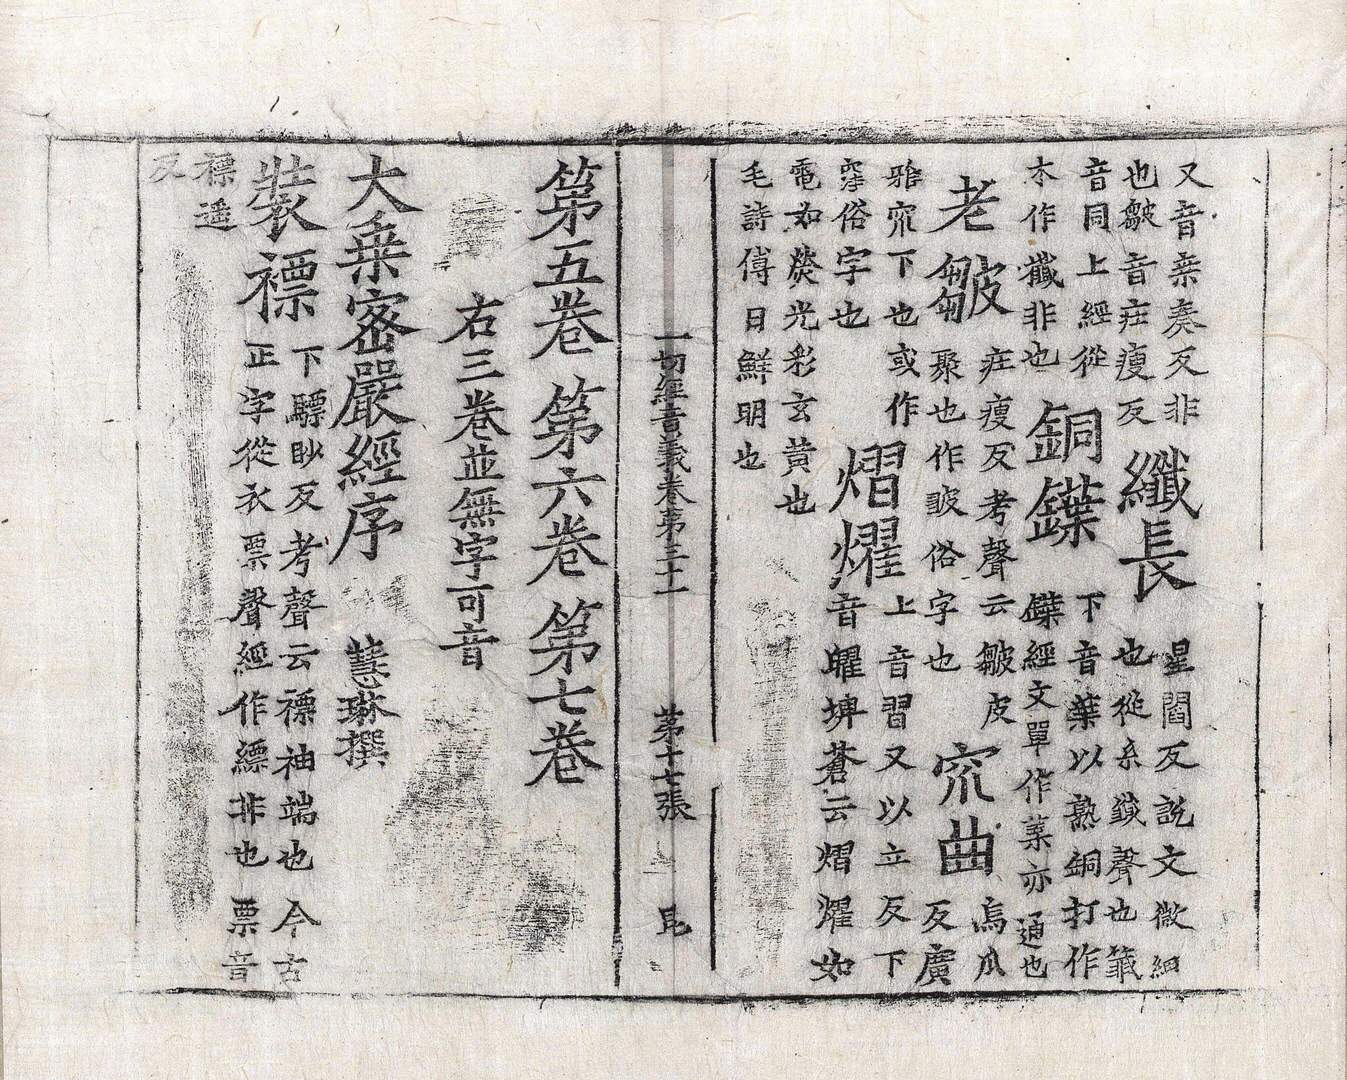 又音桒奏反非
也皺音㽵瘦反
纖長
星閻反說文微細
也從糸韱聲也籤
音同上經從
木作櫼非也
銅鍱
下音葉以熟銅打作
鍱經文單作枼亦通也
老皺
㽵瘦反考聲云皺皮
聚也作皱俗字也
窊曲
烏瓜
反廣
雅窊下也或作
窪俗字也
熠燿
上音習又以立反下
音曜埤蒼云熠燿如
電如熒光彩玄黃也
毛詩傳曰鮮明也
一切經音義卷第三十一 第十七張 毘
第五卷 第六卷 第七卷
右三卷並無字可音
大乗密嚴經序 慧琳撰
裝褾
下驃眇反考聲云褾袖端也今古
正字從衣票聲經作縹非也票音
褾遥
反